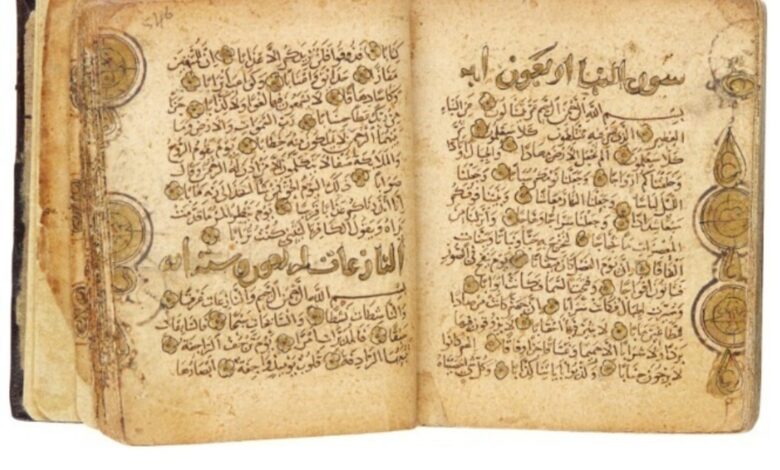 سورة النبا اربعون ايه
بسم الله الرحمن الرحيم عم يتسالون عن النباء
العظيم الذي هم فيه مختلفون كلا سيعلمون ثم
كلا سيعلمون الم نجعل الارض مهادا والجبال اوتادا
وخلقناكم ازواجا وجعلنا نومكم سباتا وجعلنا
الليل لباسا وجعلنا النهار معاشا وبنينا فوقكم
سبعا شدادا وجعلنا سراجا وهاجا وانزلنا من
المعصرات ماء ثجاجا لنخرج به حبا ونباتا وجنات
الفافا ان يوم الفصل كان ميقاتا يوم ينفخ في الصور
فتاتون افواجا وفتحت السماء فكانت ابوابا
وسيرت الجبال فكانت سرابا ان جهنم كانت مرصادا
للطاغين مابا لابثين فيها احقابا لا يذوقون فيها
بردا ولا شرابا الا حميما وغساقا جزاء وفاقا انهم كانوا
لا يرجون حسابا وكذبوا باياتنا كذابا وكل شيء احصيناه
546
كتابا فذوقوا فلن نزيدكم الا عذابا ان للمتقين
مفازا حدائق واعنابا وكواعب اترابا
وكاسا دهاقا لا يسمعون فيها لغوا ولا كذابا جزاء
من ربك عطاء حسابا رب السموات والارض وما
بينهما الرحمن لا يملكون منه خطابا يوم يقوم الروح
والملائكة صفا لا يتكلمون الا من اذن له الرحمن وقال
صوابا ذلك اليوم الحق فمن شاء اتخذ الى ربه مابا
انا انذرناكم عذابا قريبا يوم ينظر المرء ما قدمت
يداه ويقول الكافر يا ليتني كنت ترابا
النازعات اربعون وسته ايه
بسم الله الرحمن الرحيم والنازعات غرقا
والناشطات نشطا والسابحات سبحا فالسابقات
سبقا فالمدبرات امرا يوم ترجف الراجفة
تتبعها الرادفة قلوب يومئذ واجفة ابصارها